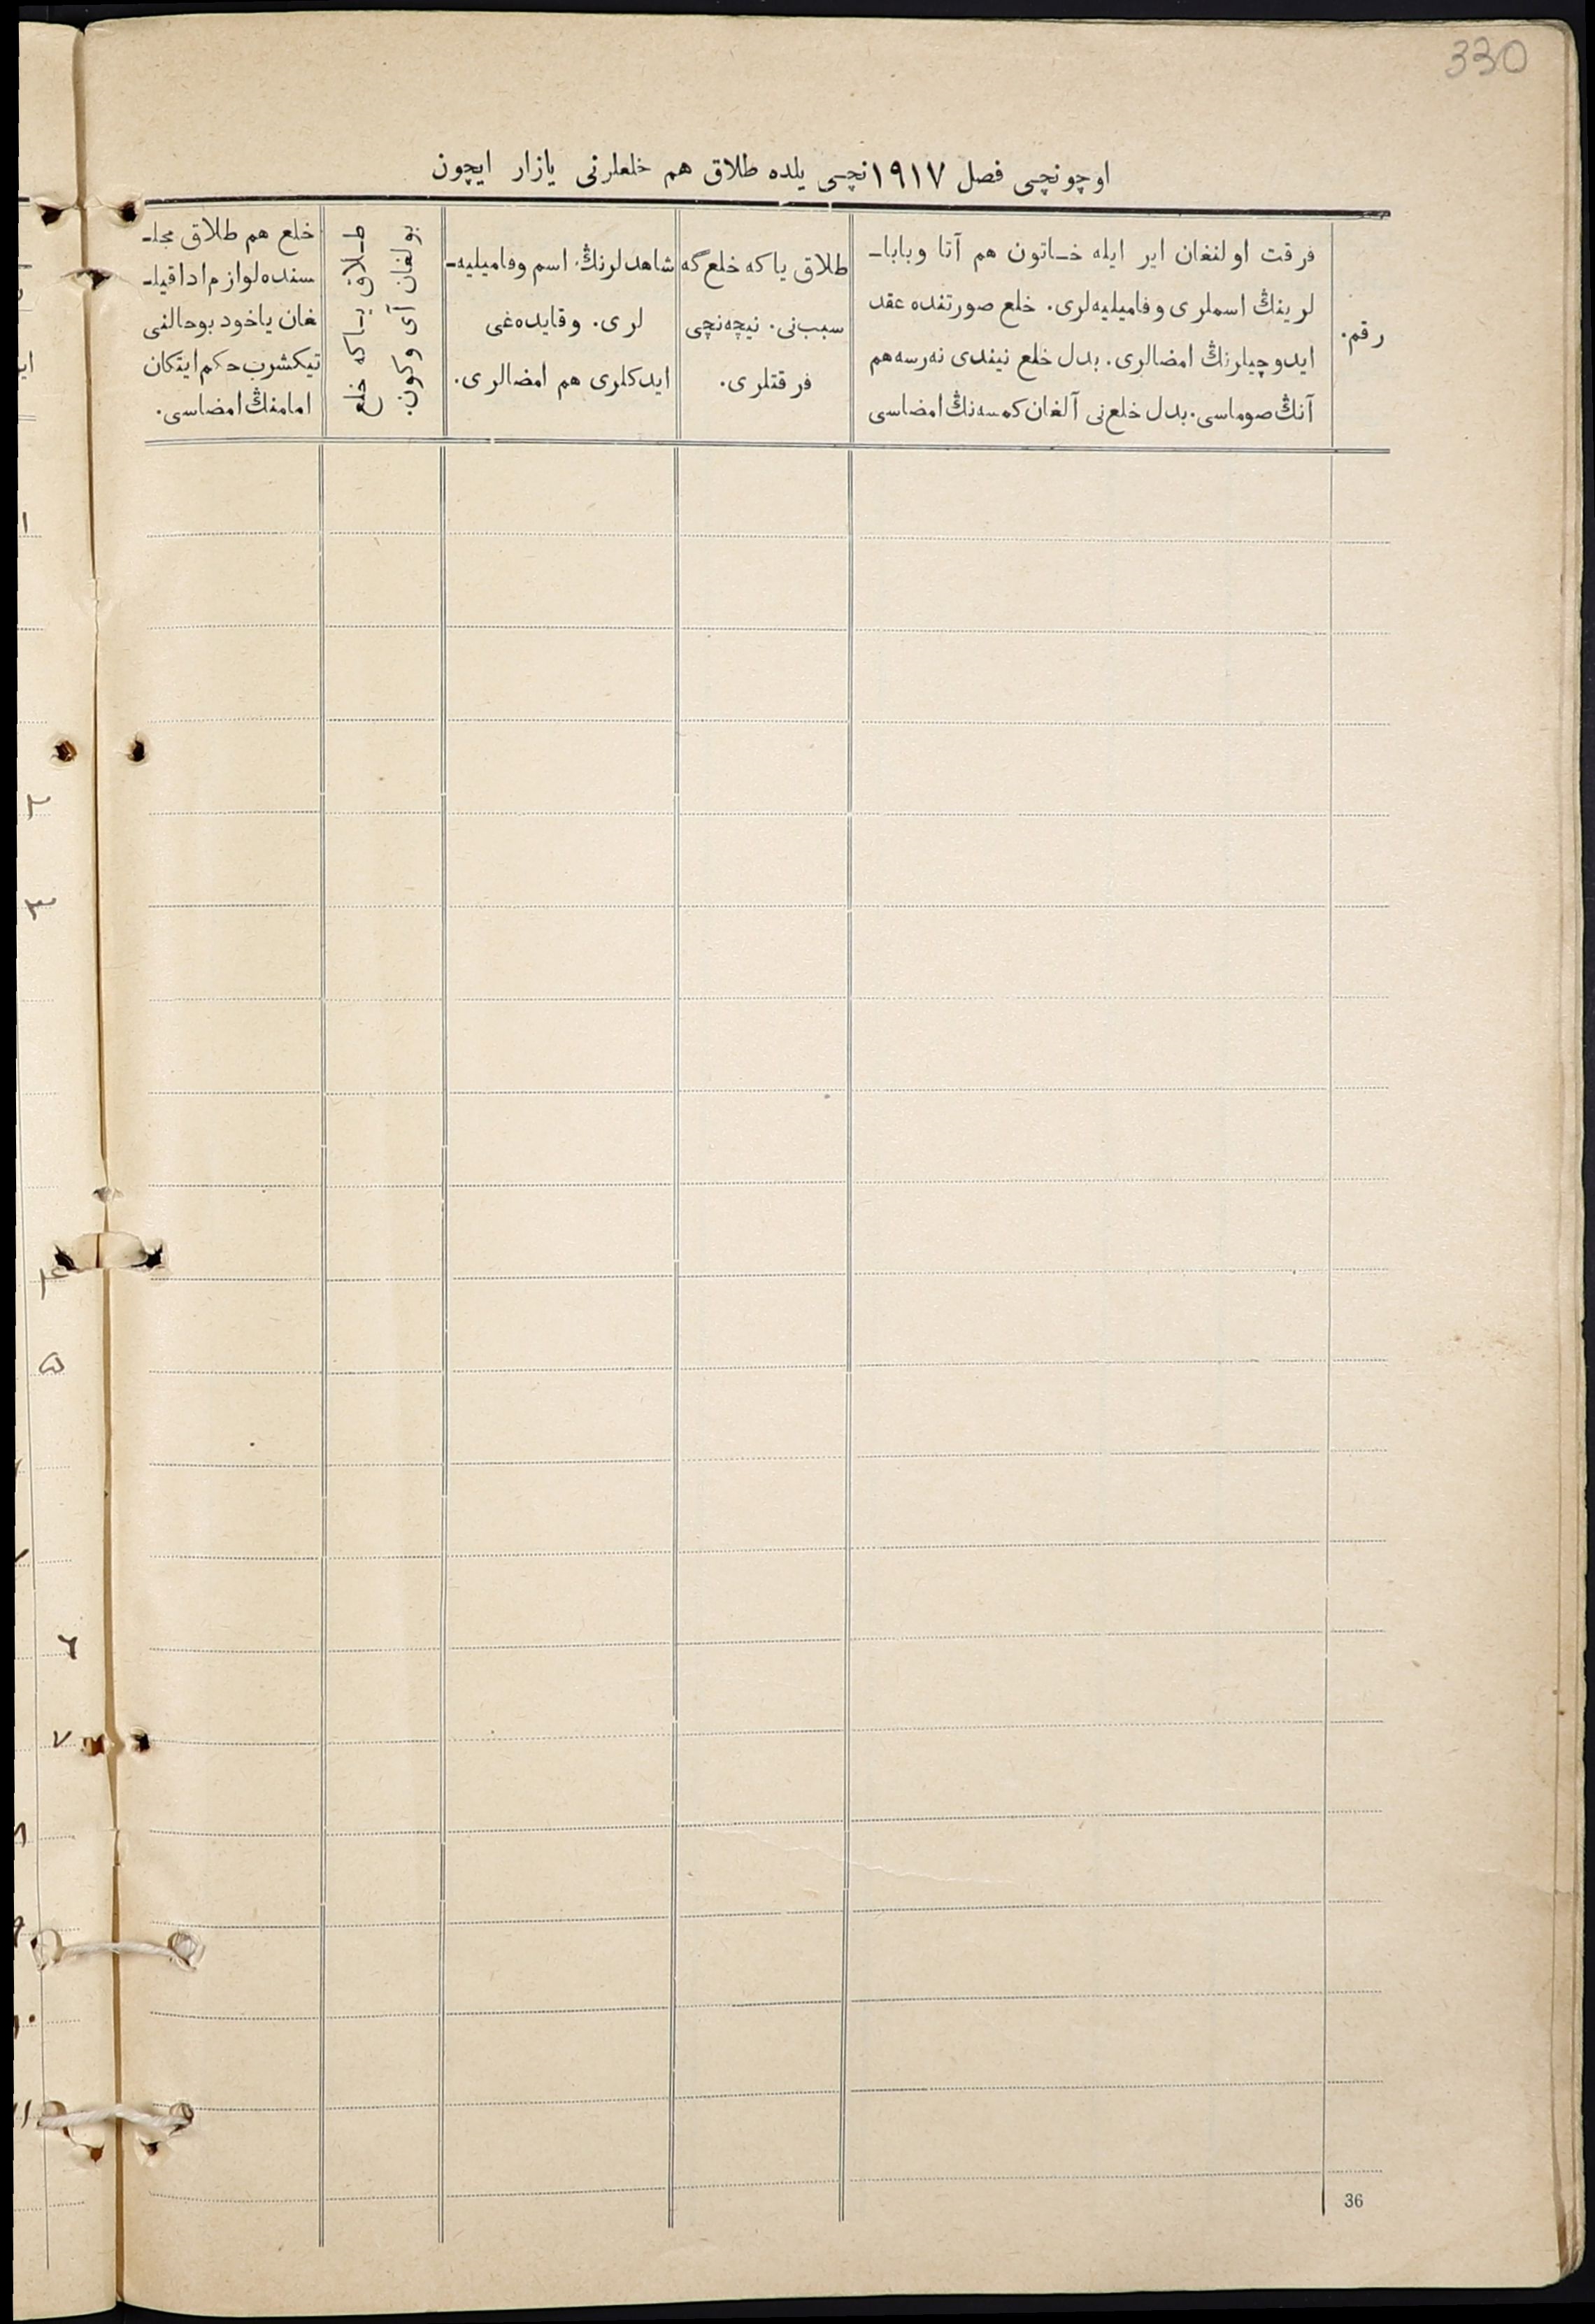 330
اوچونچی فصل ١٩١٧نچی یلده طلاق هم خلعلرنی یازار ایچون
رقم.
فرقت اولنغان ایر ایله خـاتون هم آتا وبابا-
لرینڭ اسملری وفامیلیه‌لری. خلع صورتنده عقد
ایدوچیلرنڭ امضالری. بدل خلع نیندی نه‌رسه هم
آنڭ صوماسی. بدل خلع‌نی آلغان كمسه‌نڭ امضاسی
طلاق یاكه خلع‌گه
سبب‌نی. نیچه‌نچی
فرقتلری.
شاهدلرنڭ اسم وفامیلیه-
لری. وقایده‌غی
ایدكلری هم امضالری.
طـلاق یـاكه خلع
بولغان آی وكون.
خلع هم طلاق مجلـ
سنده لوازم ادا قیلـ
غان یاخود بوحالنی
تیكشرب حكم ایتكان
امامنڭ امضاسی.
36